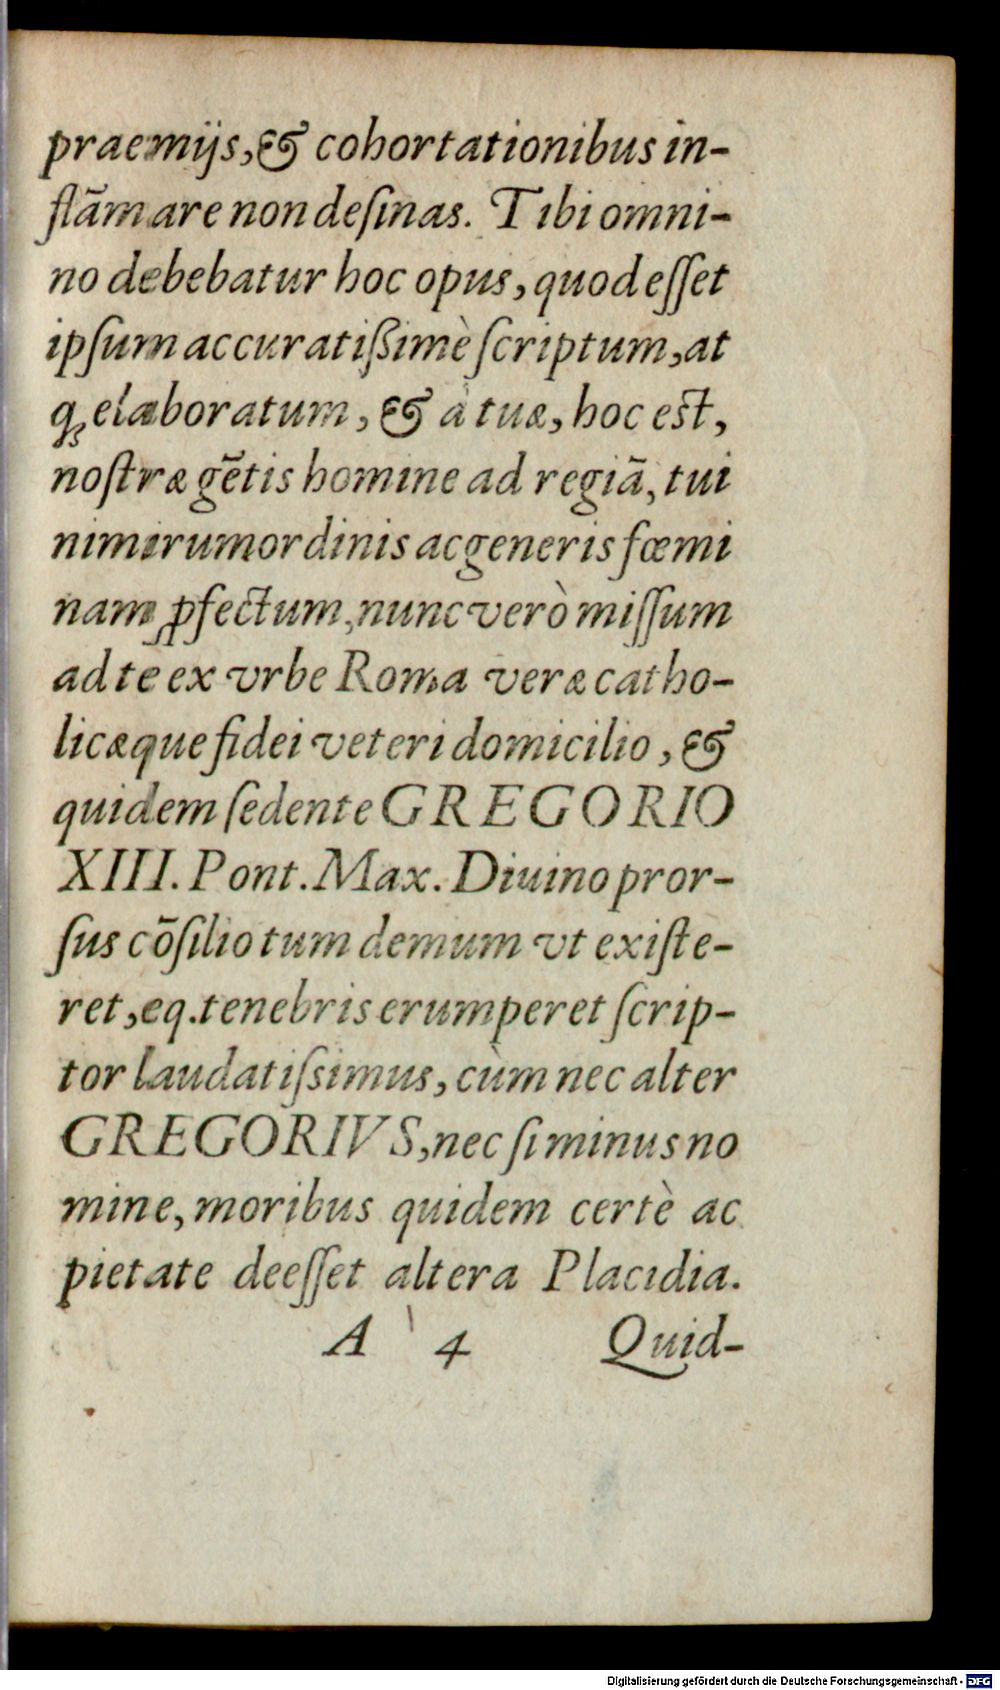 praemijs, & cohortationibus in-
flãmare non deſinas. Tibi omni-
no debebatur hoc opus, quod eſſet
ipſum accuratißimè ſcriptum, at
q; elaboratum, & à tuæ, hoc est,
noſtræ gẽtis homine ad regiã, tui
nimirum ordinis ac generis fœmi
nam ꝑfectum, nunc verò miſſum
ad te ex vrbe Roma veræ catho-
licæque fidei veteri domicilio, &
quidem ſedente GREGORIO
XIII. Pont. Max. Diuino pror-
ſus cõſilio tum demum vt exiſte-
ret, eq. tenebris erumperet ſcrip-
tor laudatiſsimus, cùm nec alter
GREGORIVS, nec ſi minus no
mine, moribus quidem certè ac
pietate deeſſet altera Placidia.
A 4 Quid-
Digitalisierung gefördert durch die Deutsche Forschungsgemeinschaft - DFG